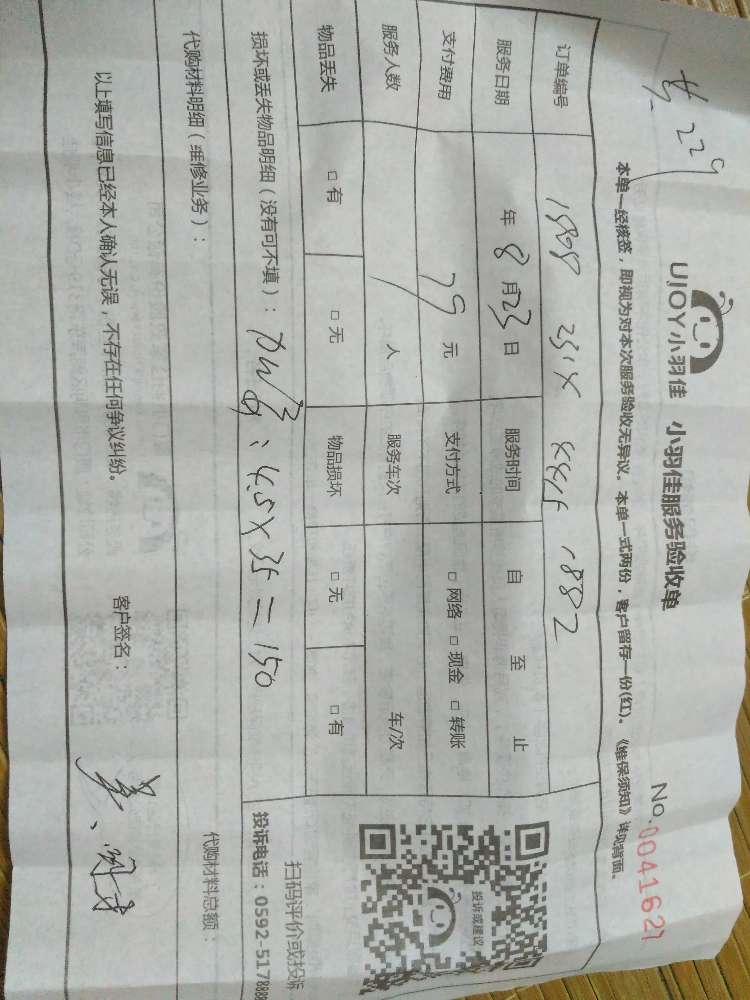 共229
UJOY小羽佳 小羽佳服务验收单
No.0041627
本单一经核签，即视为对本次服务验收无异议。本单一式两份，客户留存一份(红)。《维保须知》详见背面。
订单编号 1882
服务日期 年 8 月 23 日 服务时间 自 至 止
支付费用 79 元 支付方式 □ 网络 □ 现金 □ 转账
服务人数 1 人 服务车次 车/次
物品丢失 □ 有 □ 无 物品损坏 □ 无 □ 有
投诉或建议
扫码评价或投诉
损坏或丢失物品明细（没有可不填）： : 4.5×35=150
投诉电话：0592-5178888
代购材料明细（维修业务）： 代购材料总额：
以上填写信息已经本人确认无误，不存在任何争议纠纷。 客户签名：